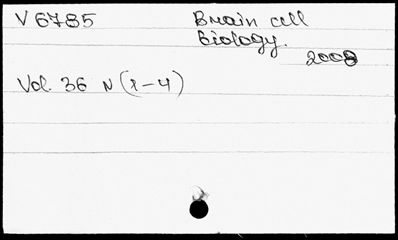 V 6785
Brain cell
biology.
2008
Vol. 36 N (1-4)